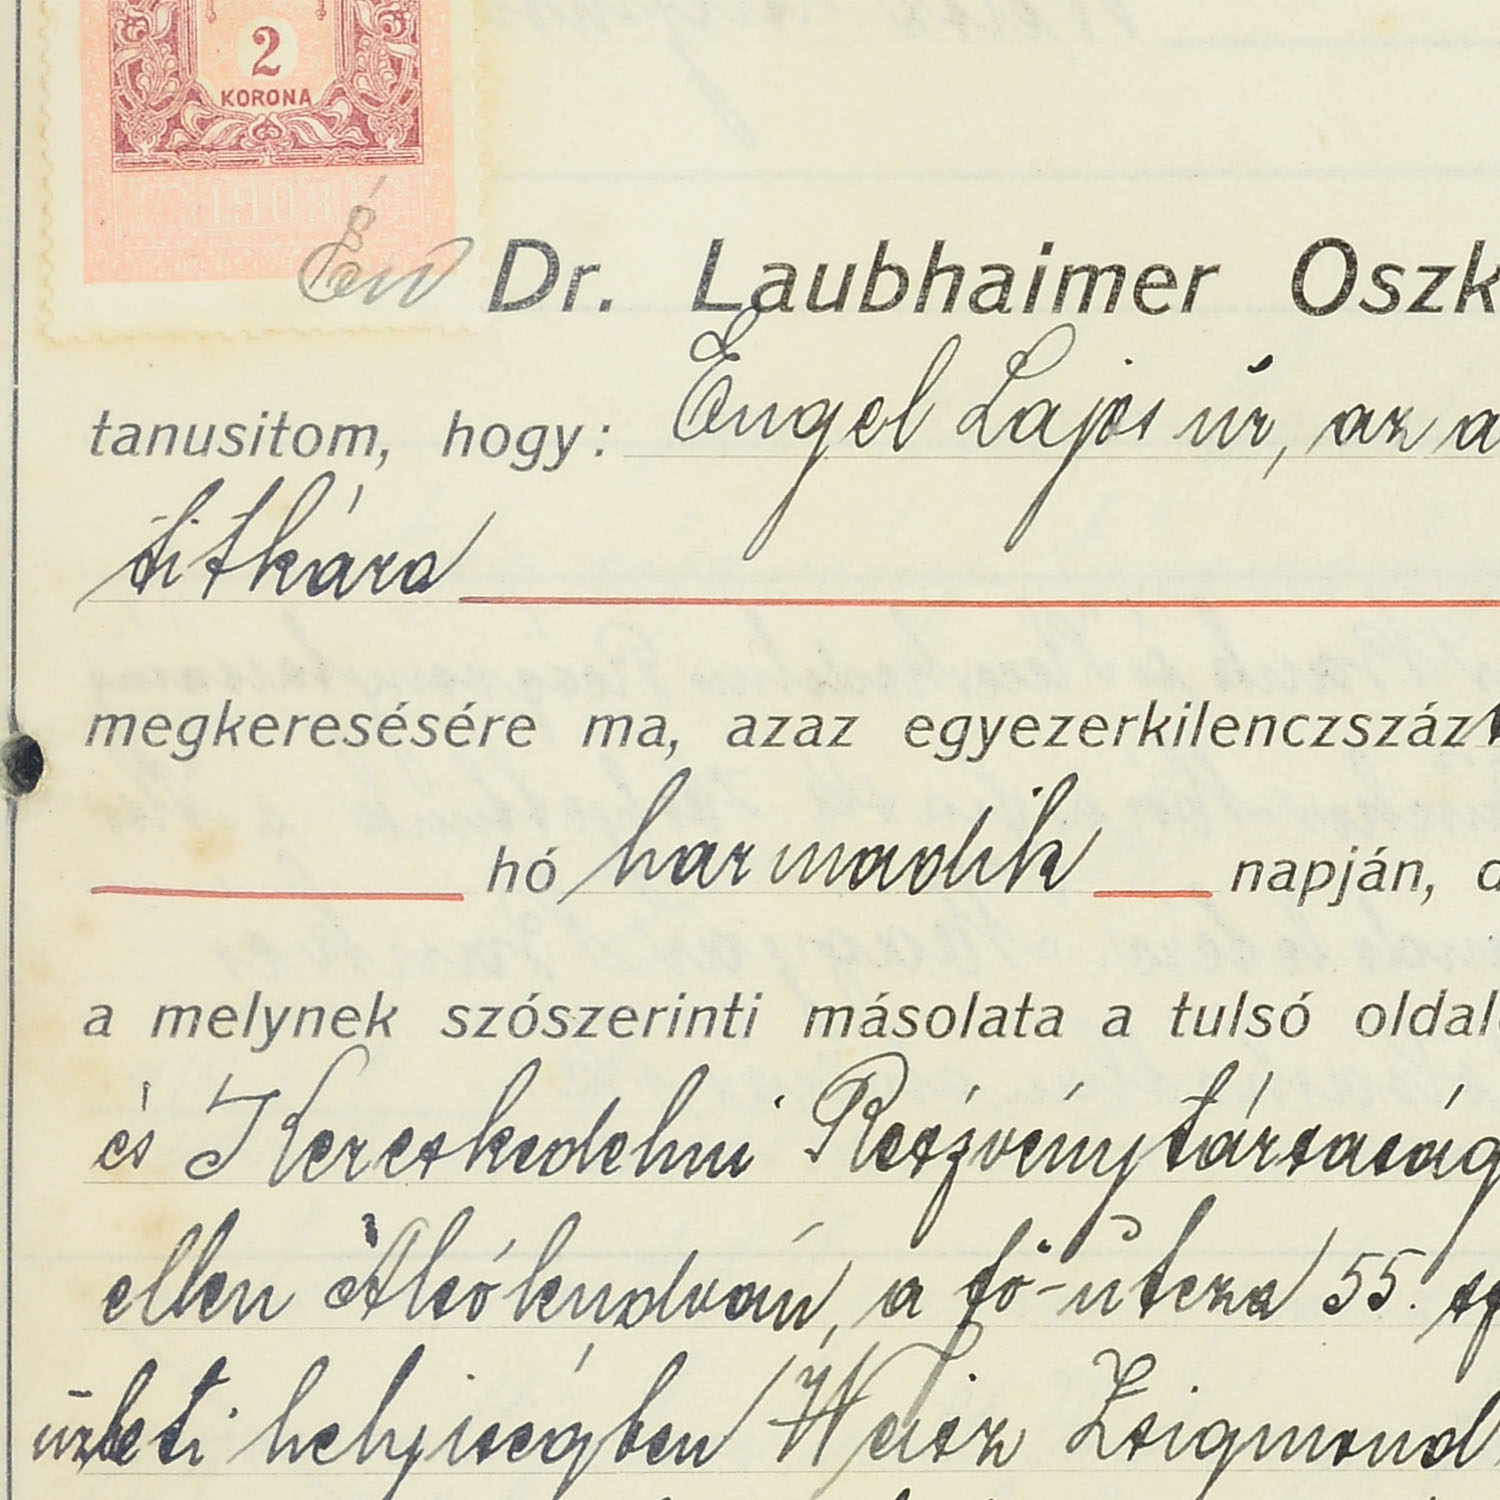 2
KORONA
1903
Én Dr. Laubhaimer Oszk
tanusitom, hogy: Engel Lajos úr, az a
titkára
megkeresésére ma, azaz egyezerkilenczszáz
hó harmadik napján, d
a melynek szószerinti másolata a tulsó oldal
és Kereskedelmi Részvénytársaság
ellen Alsólendván, a fő-utcza 55.
üzleti helyiségben Weisz Zsigmond